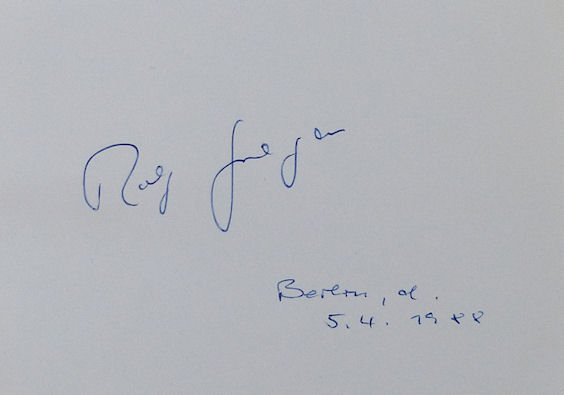 Rolf
Berlin, d.
5.4. 1988